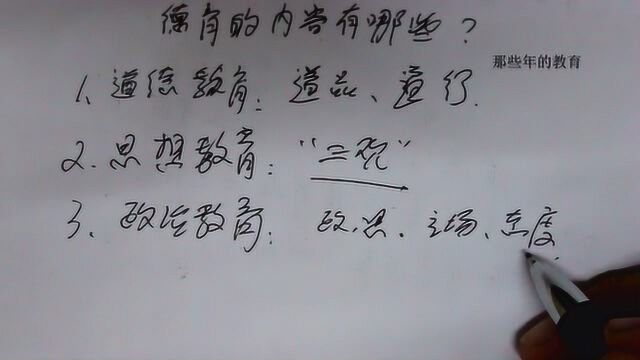 德育的内容有哪些？
那些年的教育
1、道德教育：道品、道行.
2.思想教育："三观"
3、政治教育：政思.立场、态度.